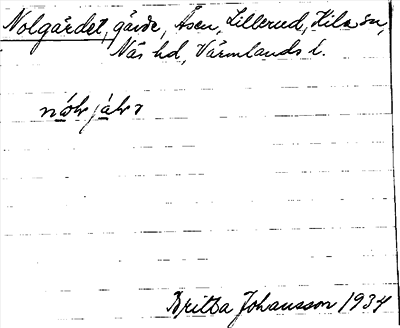 Nolgärdet, gärde, Åsen, Lillerud, Kila sn,
Näs hd, Värmlands l.
Britta Johansson 1934